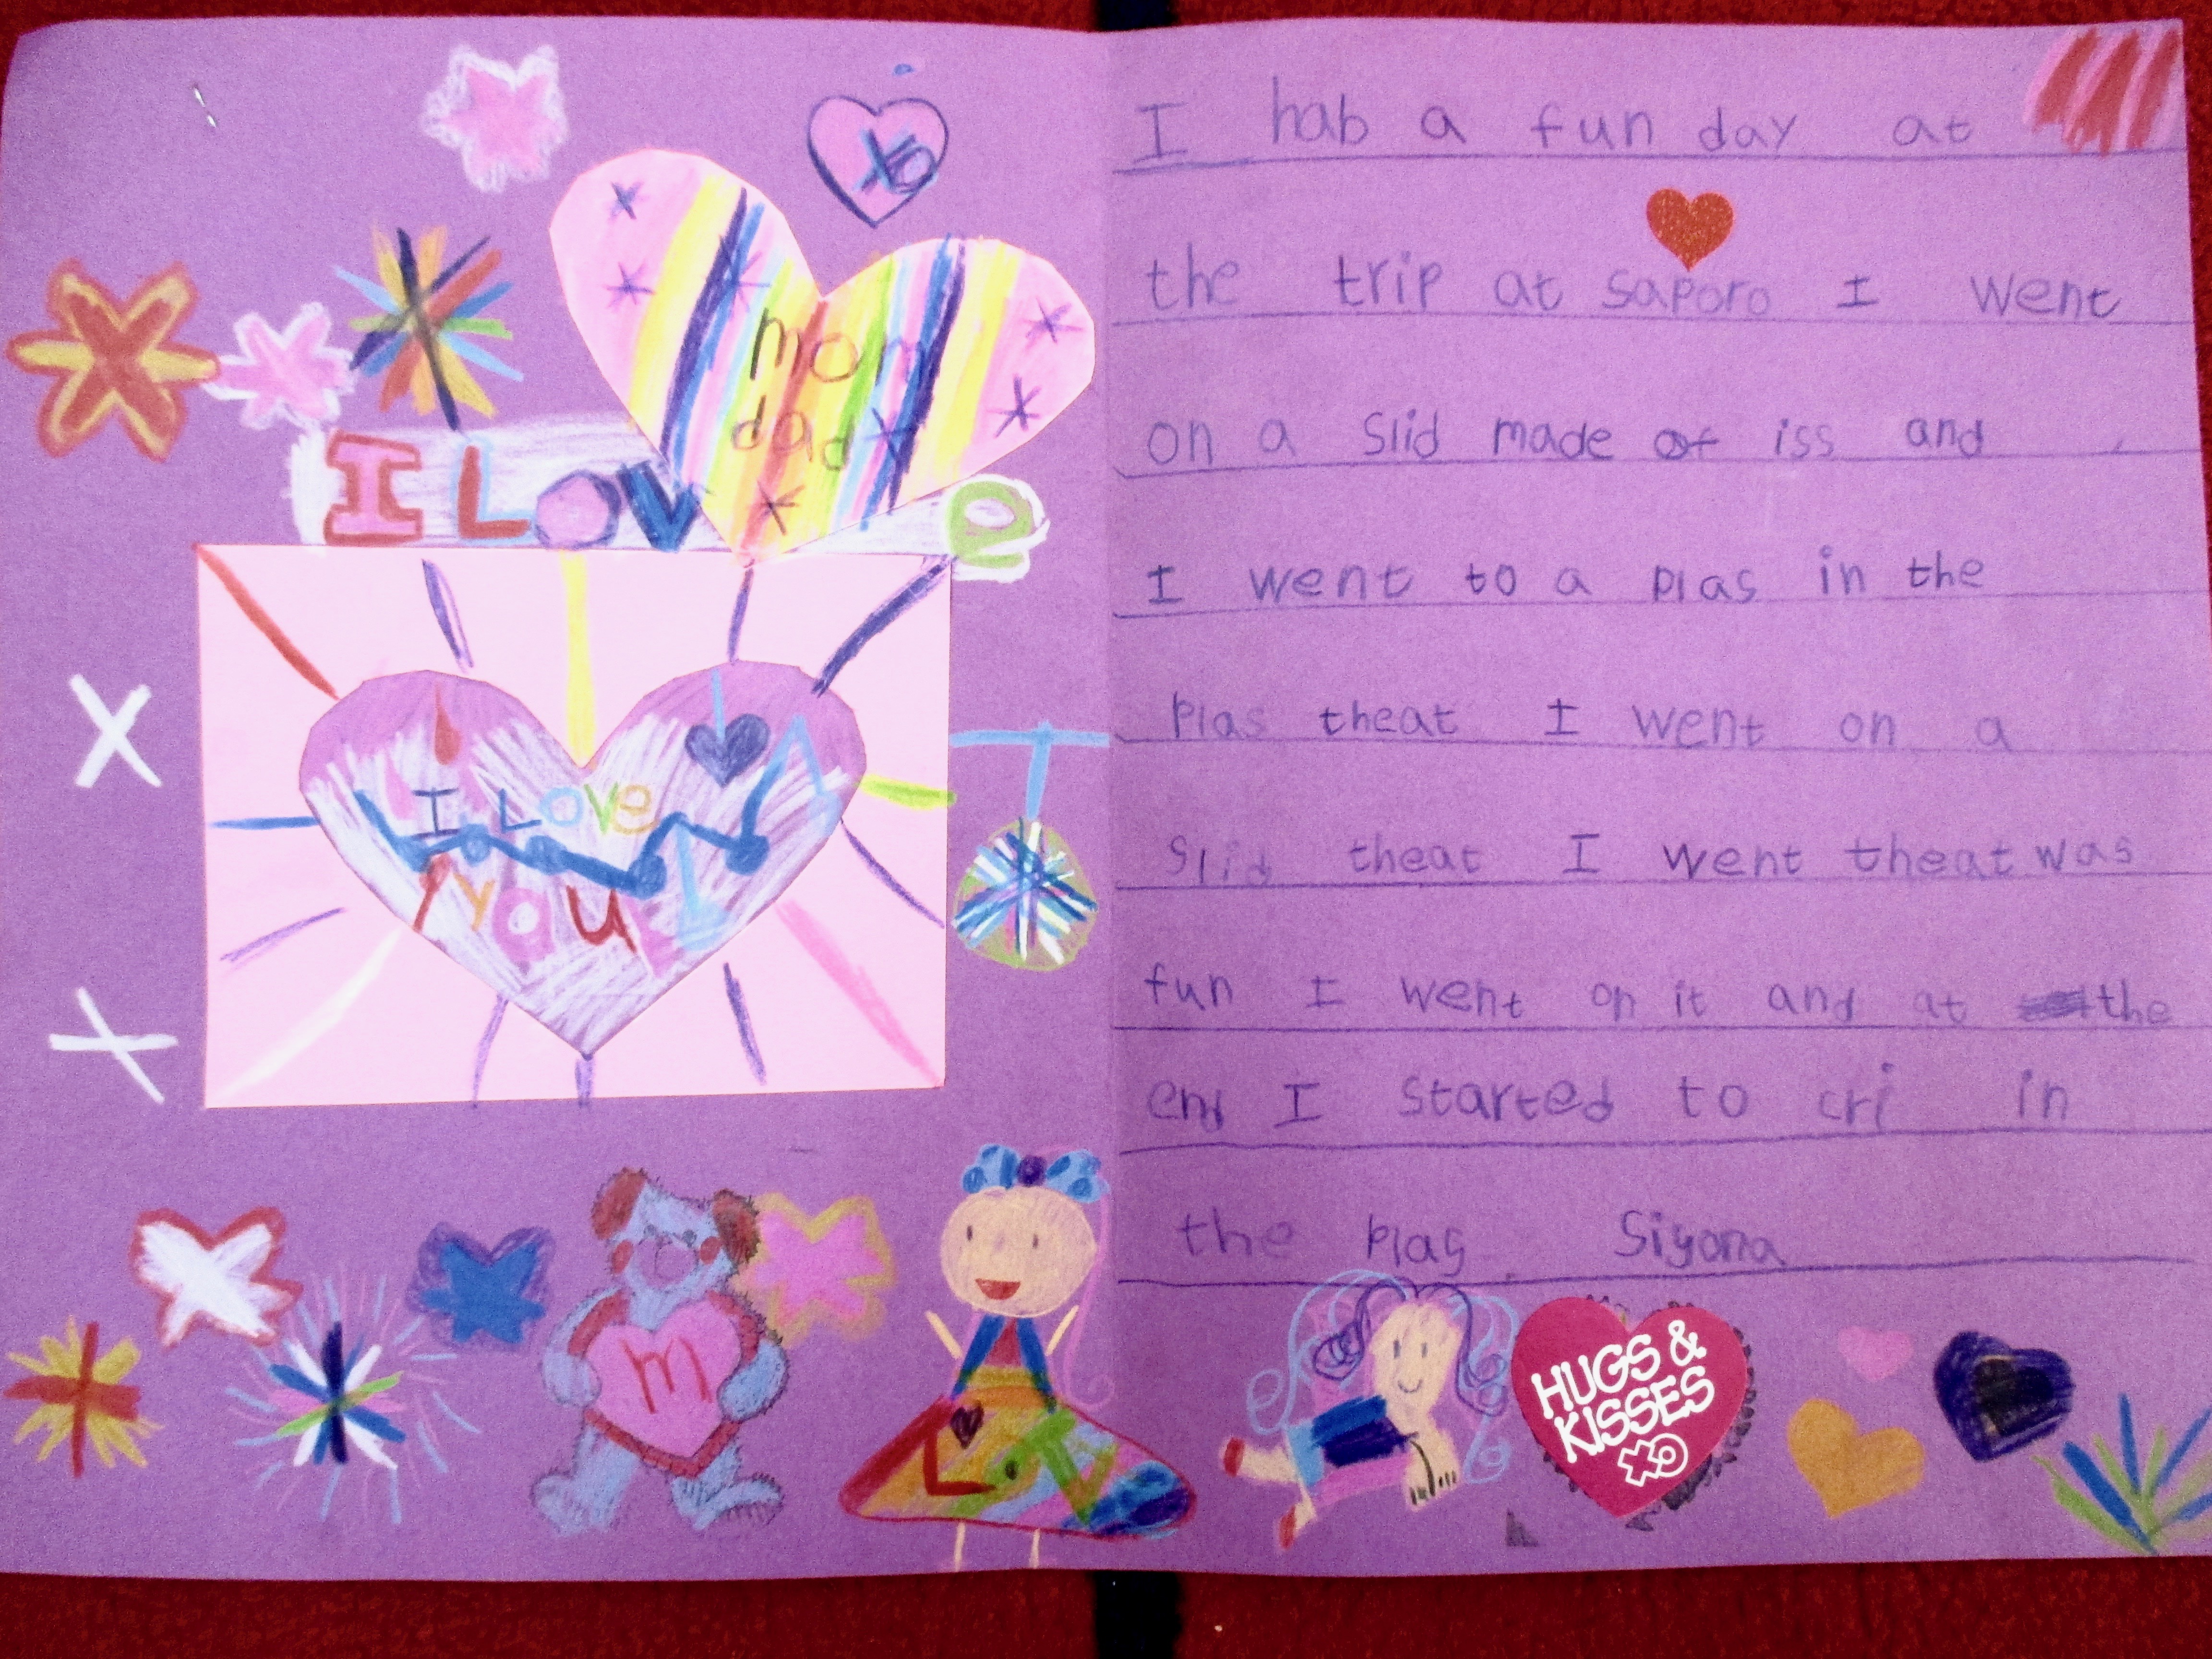 xo
mom
dad
I Love
I Love
you
m
Lov
I hab a fun day at
the trip at saporo I went
on a slid made of iss and
I went to a plas in the
plas theat I went on a
slid theat I went theat was
fun I went on it and at the
end I started to cri in
the plas. Siyona
HUGS &
KISSES
xo